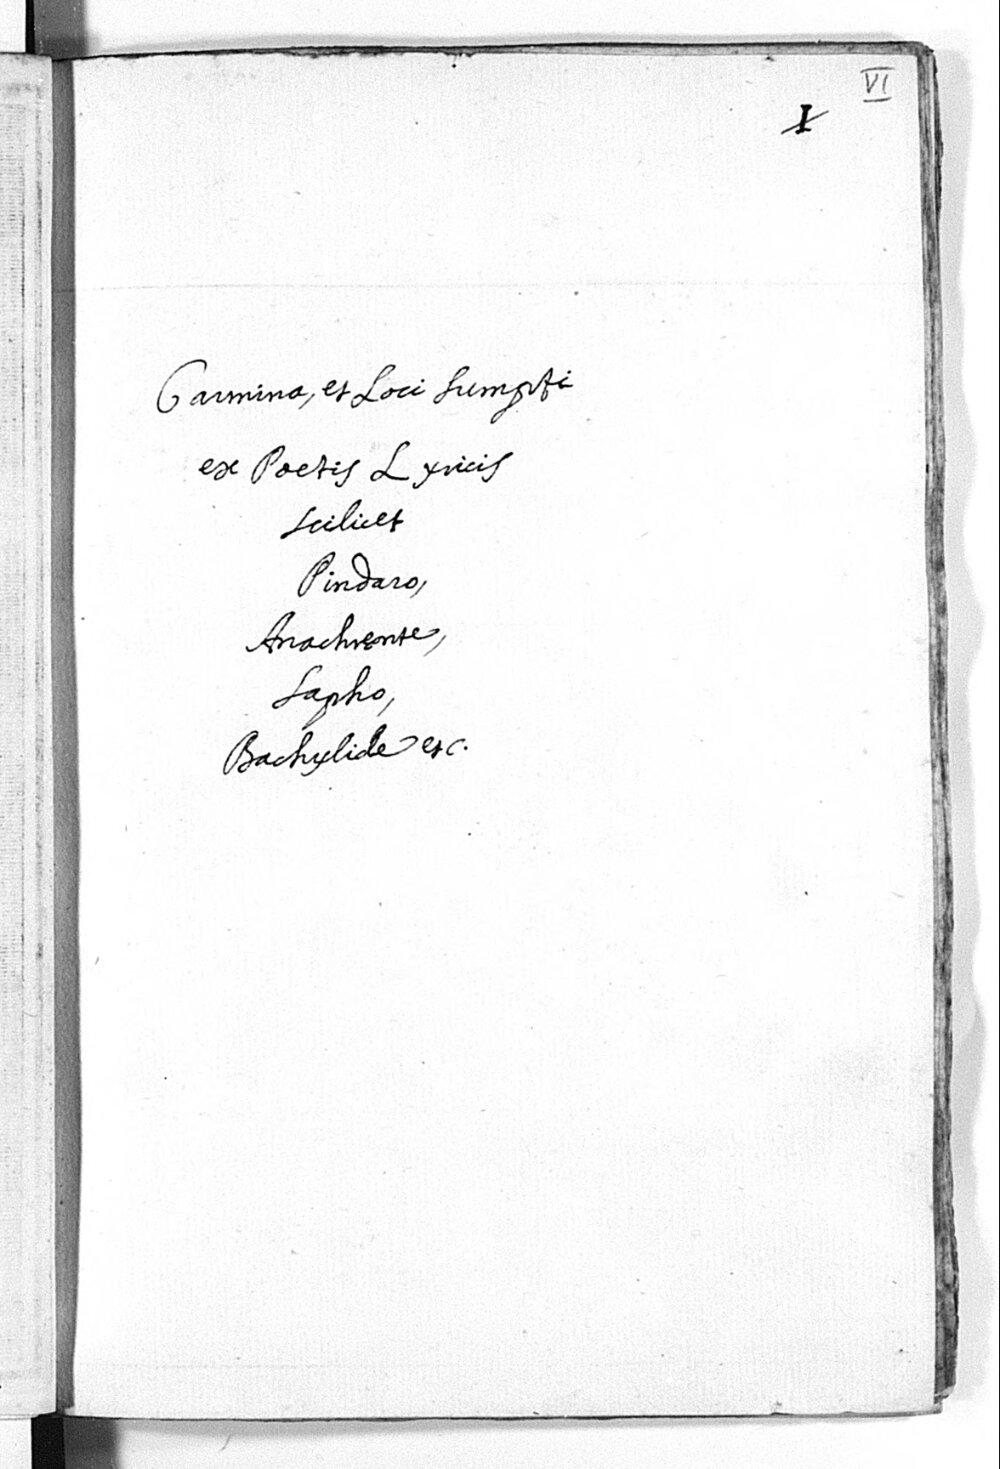 VI
I
Carmina, et Loci sumpti
ex Poetis Lyricis
scilicet
Pindaro,
Anachreonte,
Sapho,
Bachylide etc.